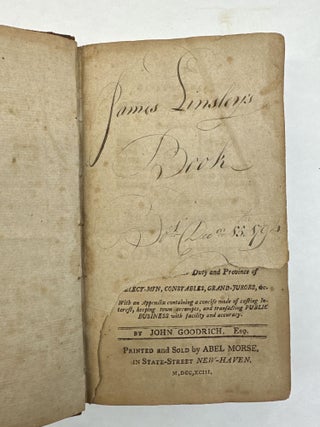 James Linsley's
Book
Duty and Province of
SELECT-MEN, CONSTABLES, GRAND-JURORS, &c.
With an Appendix containing a concise mode of casting In-
terest, keeping town accompts, and transacting PUBLIC
BUSINESS with facility and accuracy.
BY JOHN GOODRICH, Esq.
PRINTED and SOLD by ABEL MORSE,
IN STATE-STREET NEW-HAVEN.
M,DCC,XCIII.